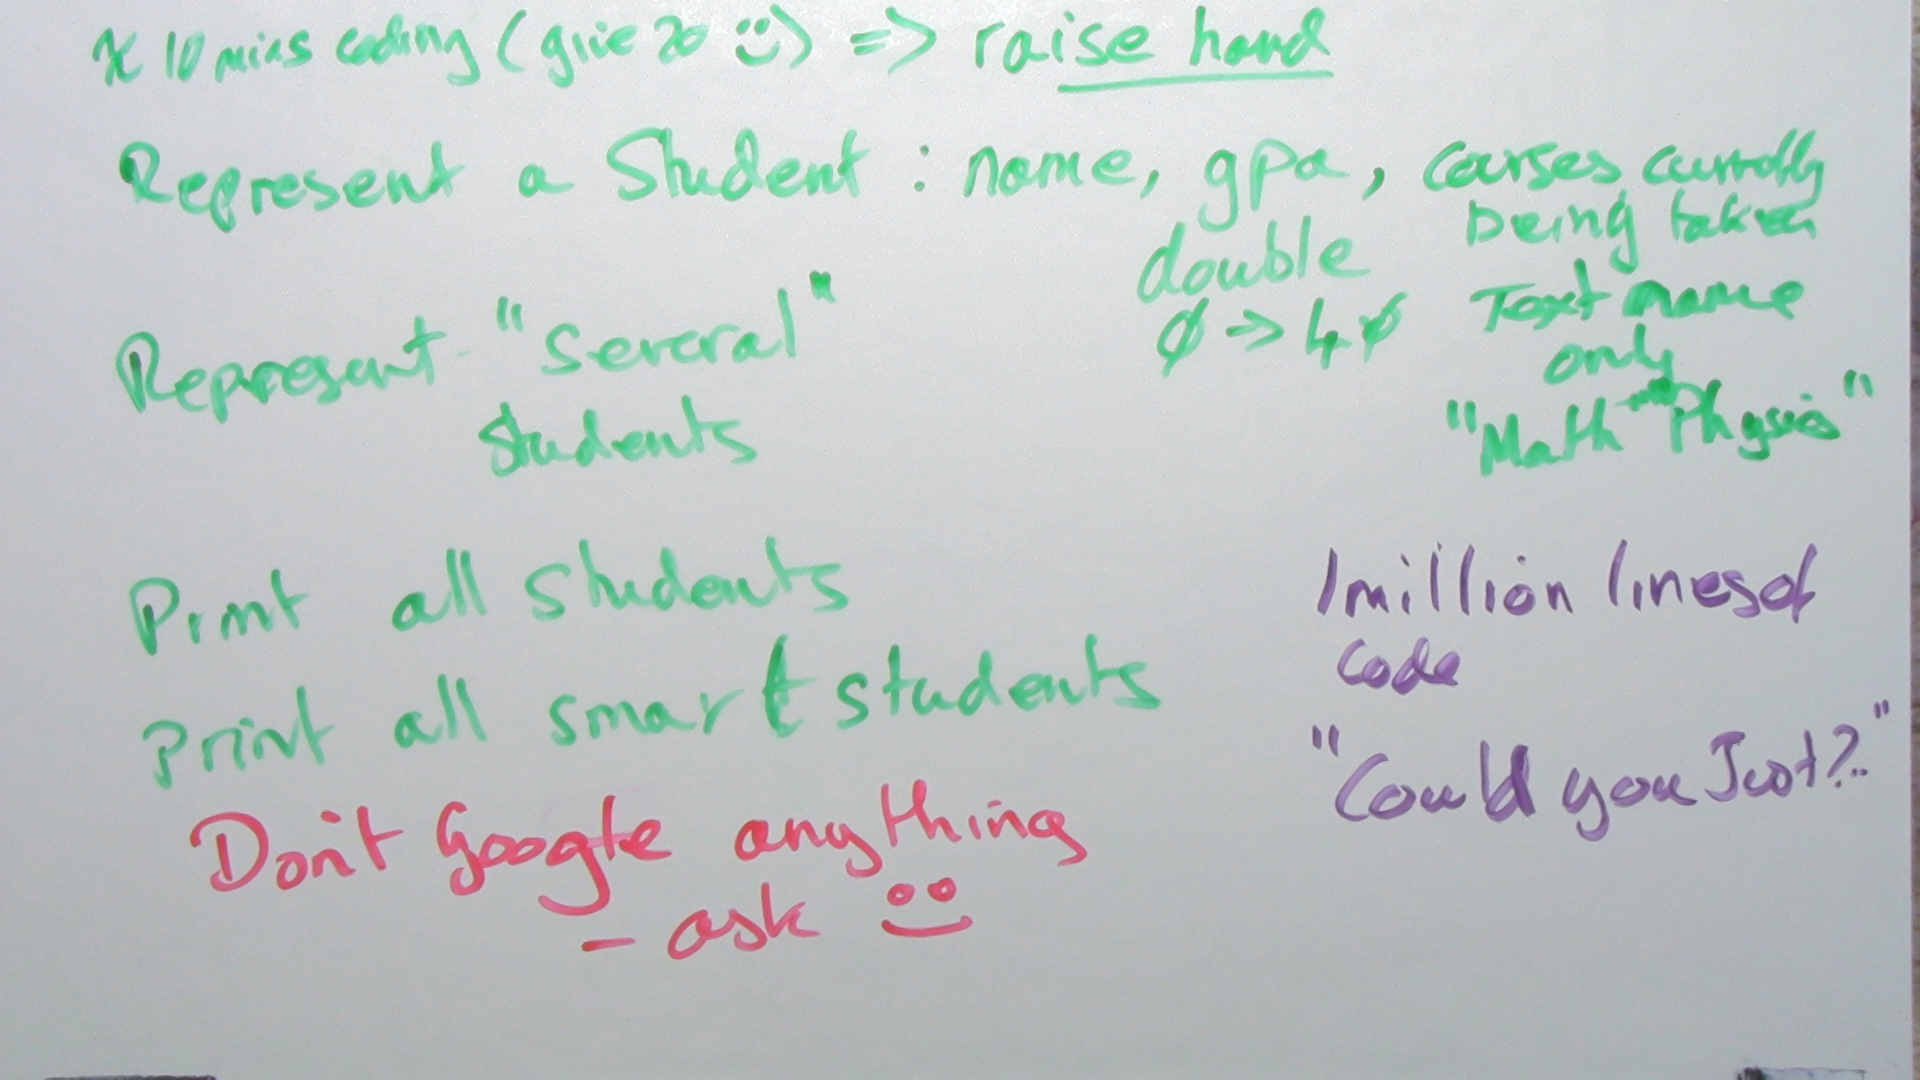 10 mins coding (give 20 :)) => raise hand
Represent a Student : name, gpa, courses currently
being taken
double
0 -> 4.0
Text name
only
"Math Physics"
Represent "several"
students
Print all students
Print all smart students
Don't Google anything
- ask :)
1 million lines of
code
"Could you Just?.."